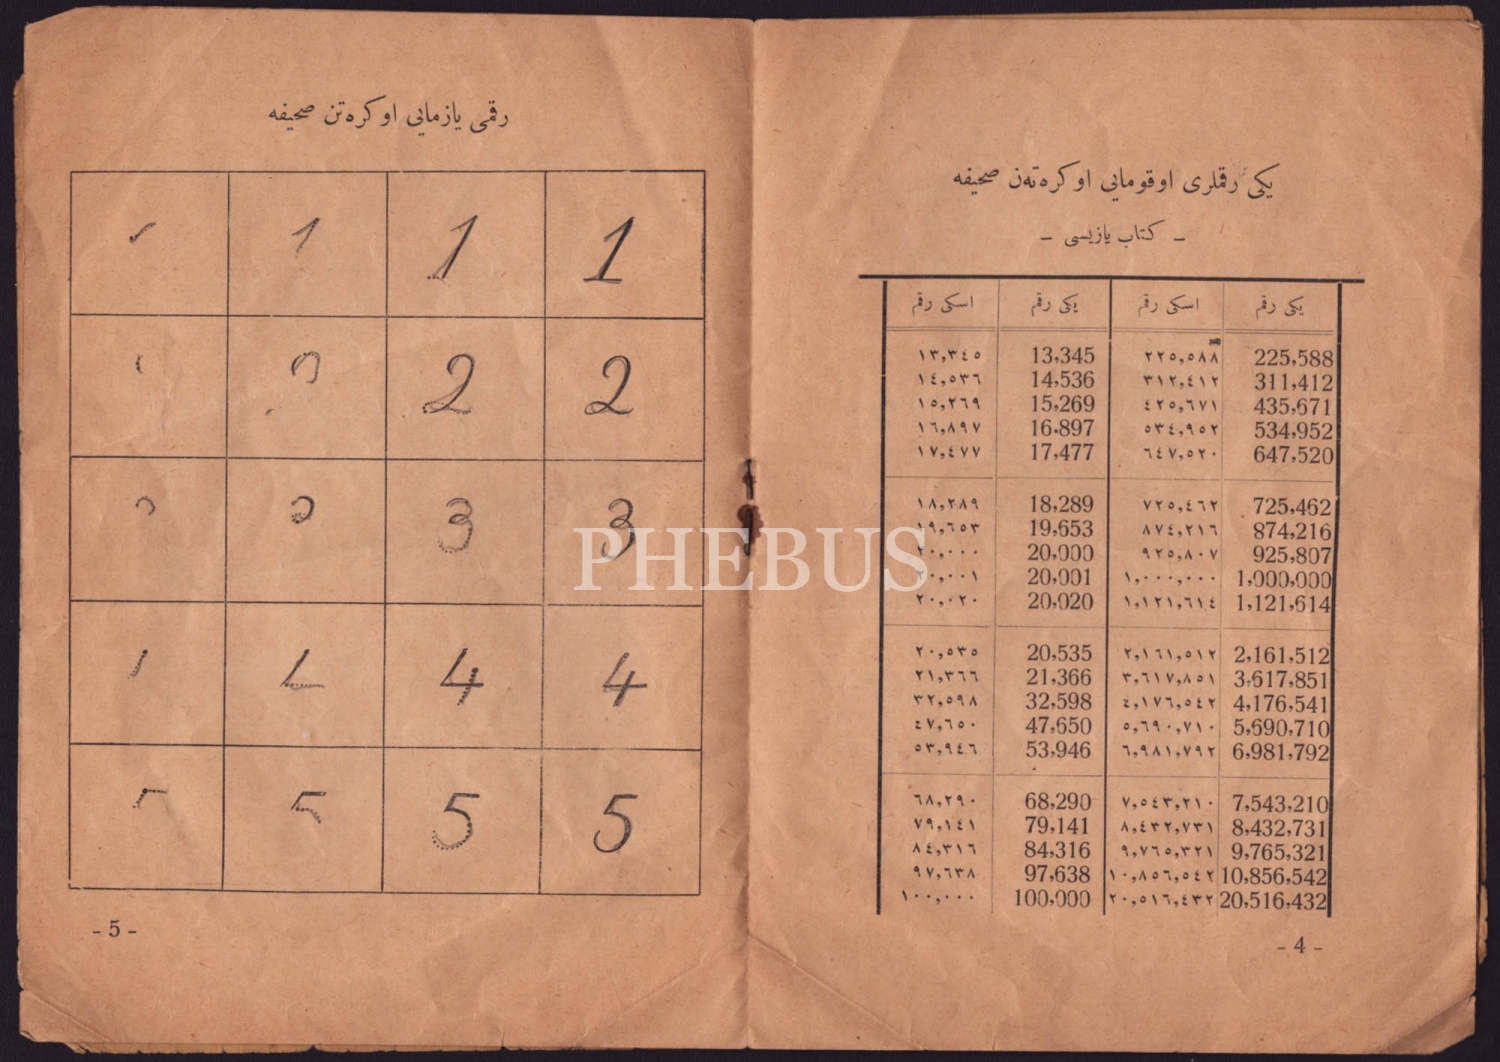 يكى رقملرى اوقومايى اوكره‌ته‌ن صحيفه
ـ كتاب يازيسى ـ
يكى رقم اسكى رقم يكى رقم اسكى رقم
225,588 ٢٢٥,٥٨٨ 13,345 ١٣,٣٤٥
311,412 ٣١٢,٤١٢ 14,536 ١٤,٥٣٦
435,671 ٤٢٥,٦٧١ 15,269 ١٥,٢٦٩
534,952 ٥٣٤,٩٥٢ 16,897 ١٦,٨٩٧
647,520 ٦٤٧,٥٢٠ 17,477 ١٧,٤٧٧
725,462 ٧٢٥,٤٦٢ 18,289 ١٨,٢٨٩
874,216 ٨٧٤,٢١٦ 19,653 ١٩,٦٥٣
925,807 ٩٢٥,٨٠٧ 20,000 ٢٠,٠٠٠
1,000,000 ١,٠٠٠,٠٠٠ 20,001 ٢٠,٠٠١
1,121,614 ١,١٢١,٦١٤ 20,020 ٢٠,٠٢٠
2,161,512 ٢,١٦١,٥١٢ 20,535 ٢٠,٥٣٥
3,617,851 ٣,٦١٧,٨٥١ 21,366 ٢١,٣٦٦
4,176,541 ٤,١٧٦,٥٤٢ 32,598 ٣٢,٥٩٨
5,690,710 ٥,٦٩٠,٧١٠ 47,650 ٤٧,٦٥٠
6,981,792 ٦,٩٨١,٧٩٢ 53,946 ٥٣,٩٤٦
7,543,210 ٧,٥٤٣,٢١٠ 68,290 ٦٨,٢٩٠
8,432,731 ٨,٤٣٢,٧٣١ 79,141 ٧٩,١٤١
9,765,321 ٩,٧٦٥,٣٢١ 84,316 ٨٤,٣١٦
10,856,542 ١٠,٨٥٦,٥٤٢ 97,638 ٩٧,٦٣٨
20,516,432 ٢٠,٥١٦,٤٣٢ 100,000 ١٠٠,٠٠٠
- 4 -
رقمى يازمايى اوكره‌تن صحيفه
1 1 1
2 2
3 3
4 4
5 5
- 5 -
PHEBUS